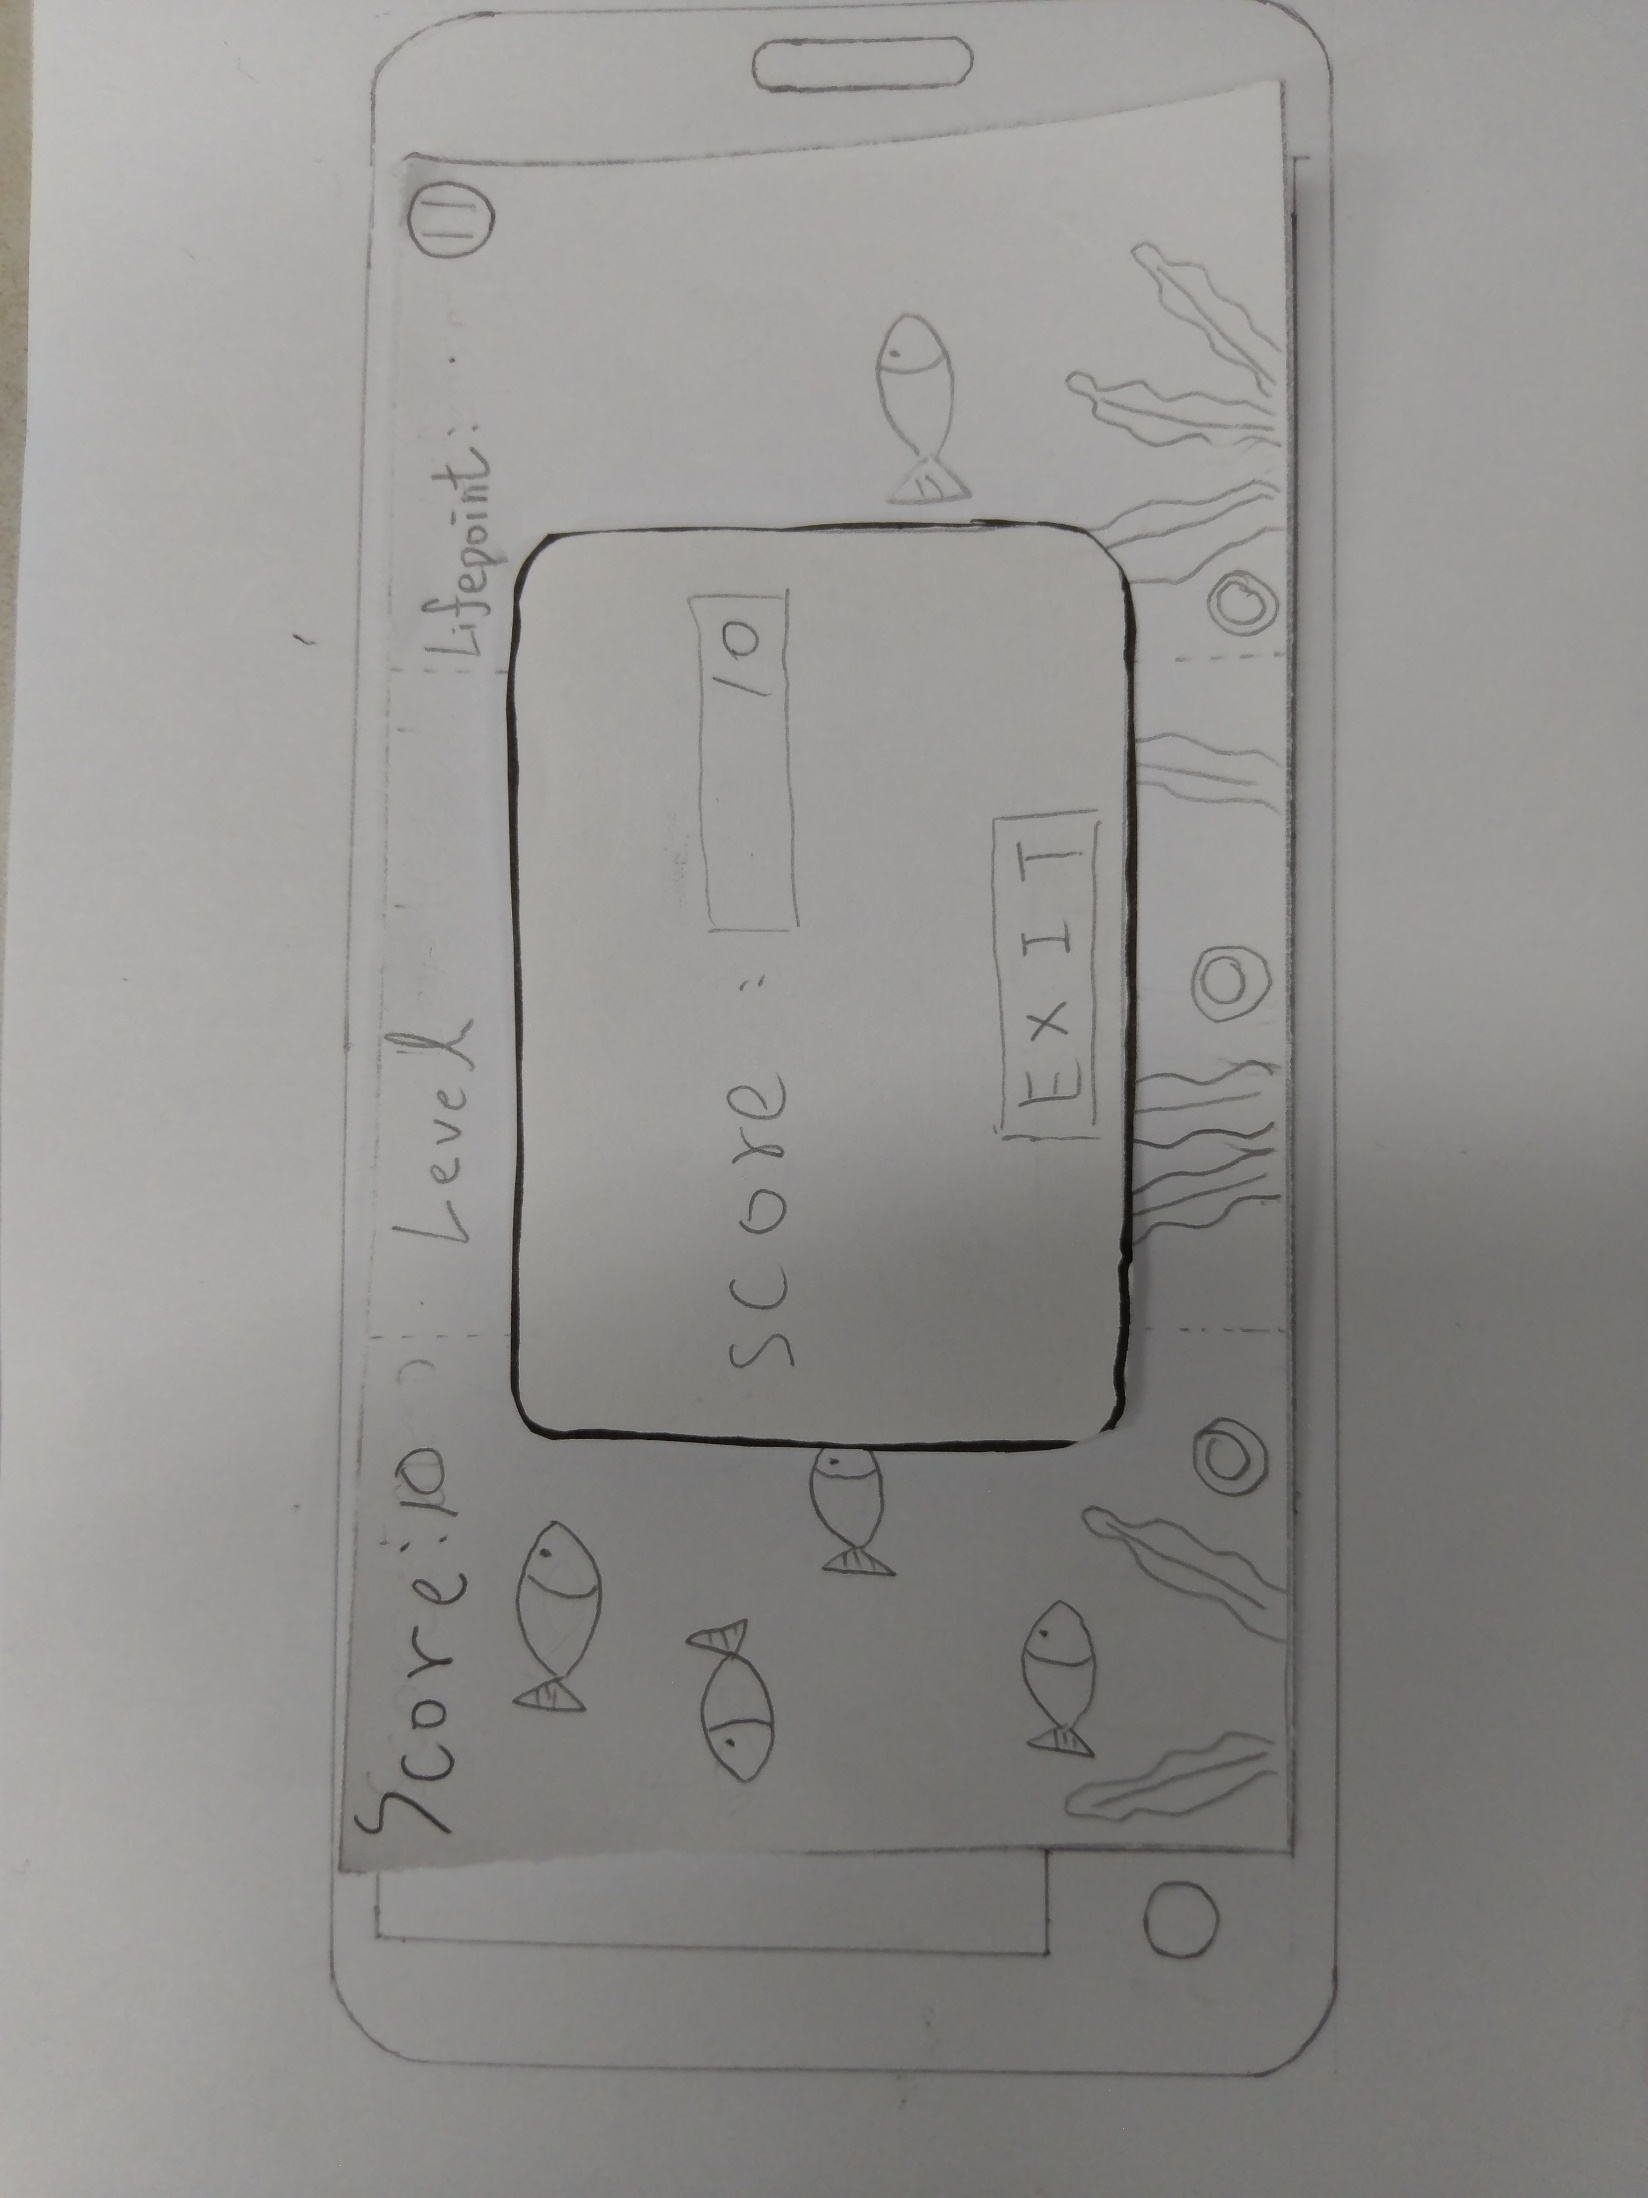 Score:10
Level
Lifepoint:
Score : 10
EXIT